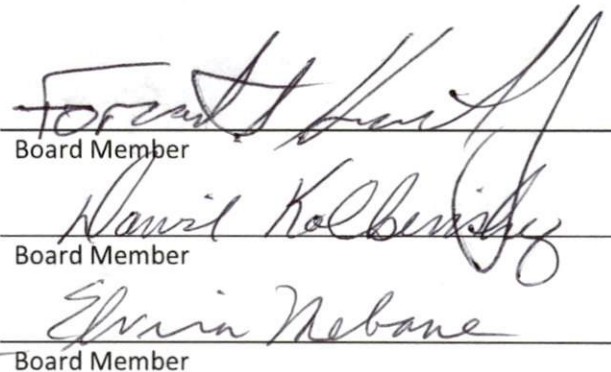 Forrest
Board Member
David Kolbinsky
Board Member
Elvira Mebane
Board Member